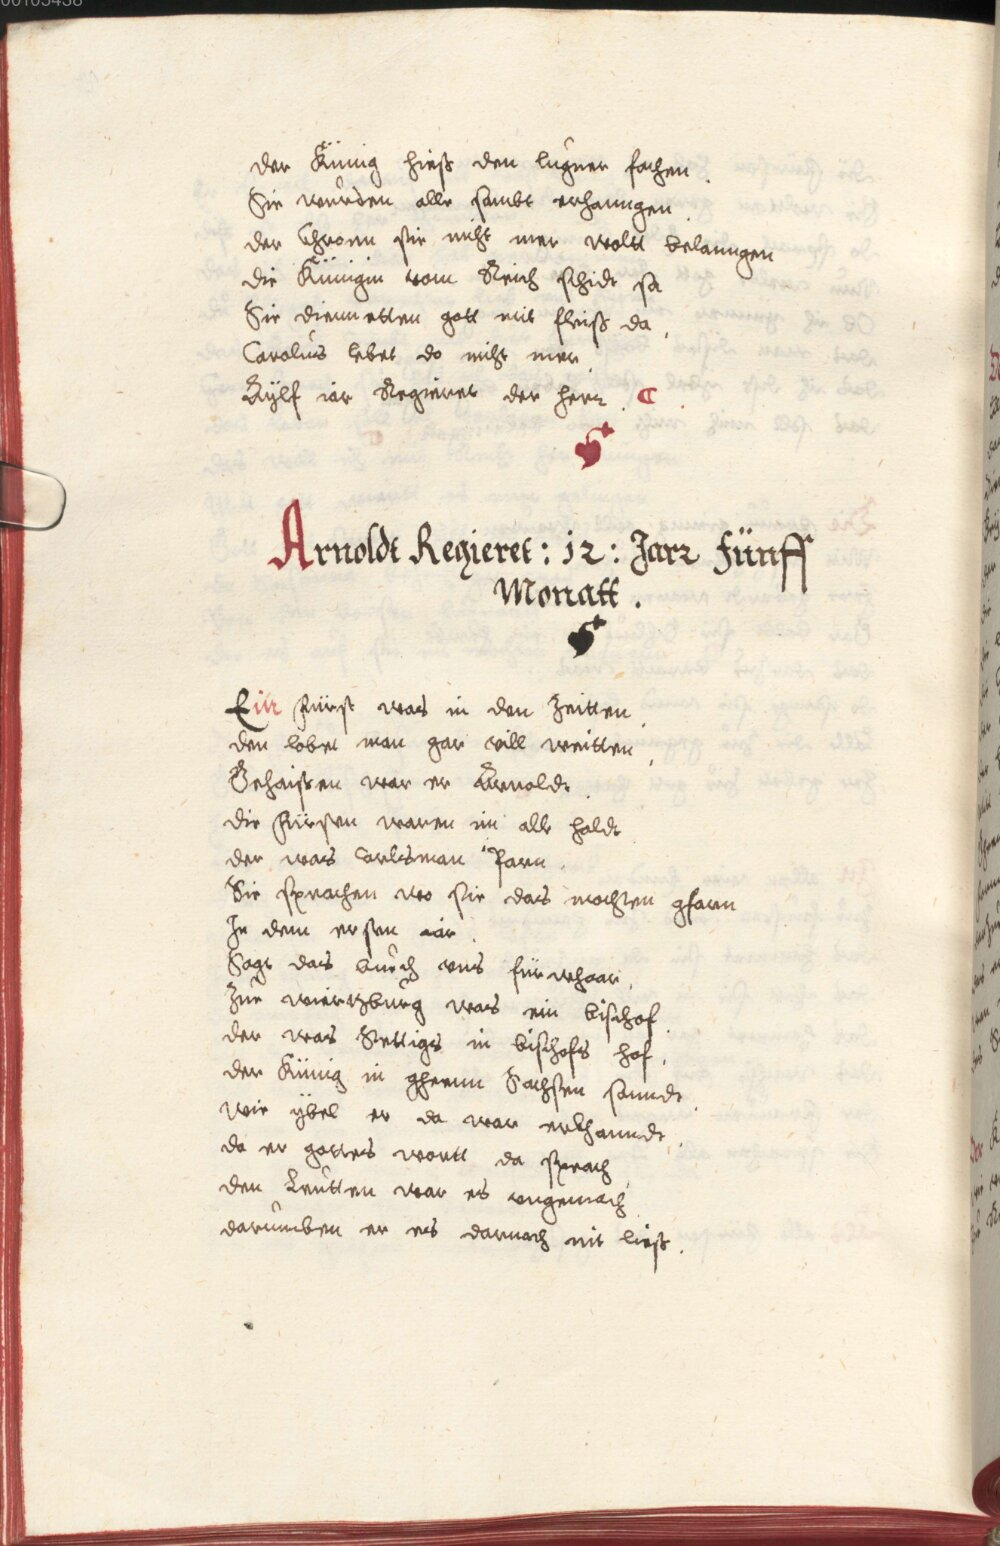 der Künig hieß den lugner fachen.
Sie wurden alle sambt erhanngen.
der Chronn sie nicht mer wollt belanngen
die Künigin vom Reich schidt sa
Sie dienneten gott mit fleiß da,
Carolus lebet do nicht mer,
Aylf iar Regieret der herr.
Arnoldt Regieret: 12: Jarr Fünff
Monatt.
Ein Fürst was in den Zeitten,
den lobet man gar vill weitten,
Gehaissen war er Arnoldt.
die Fürsten waren im alle holdt
der was Carlsman Parn.
Sie sprachen wo sie das mochten gfarn
In dem ersten iar.
Sagt das buech uns fürwhaar,
Zue wiertzburg was ein bischof
der was Rettigs in bischofs hof,
der Künig in gheenn Sachsen sanndt,
wie ybel er da war erkhanndt,
da er gottes wortt da sprach
den Leutten war es ungemach
darumben er es darnach nit ließ.